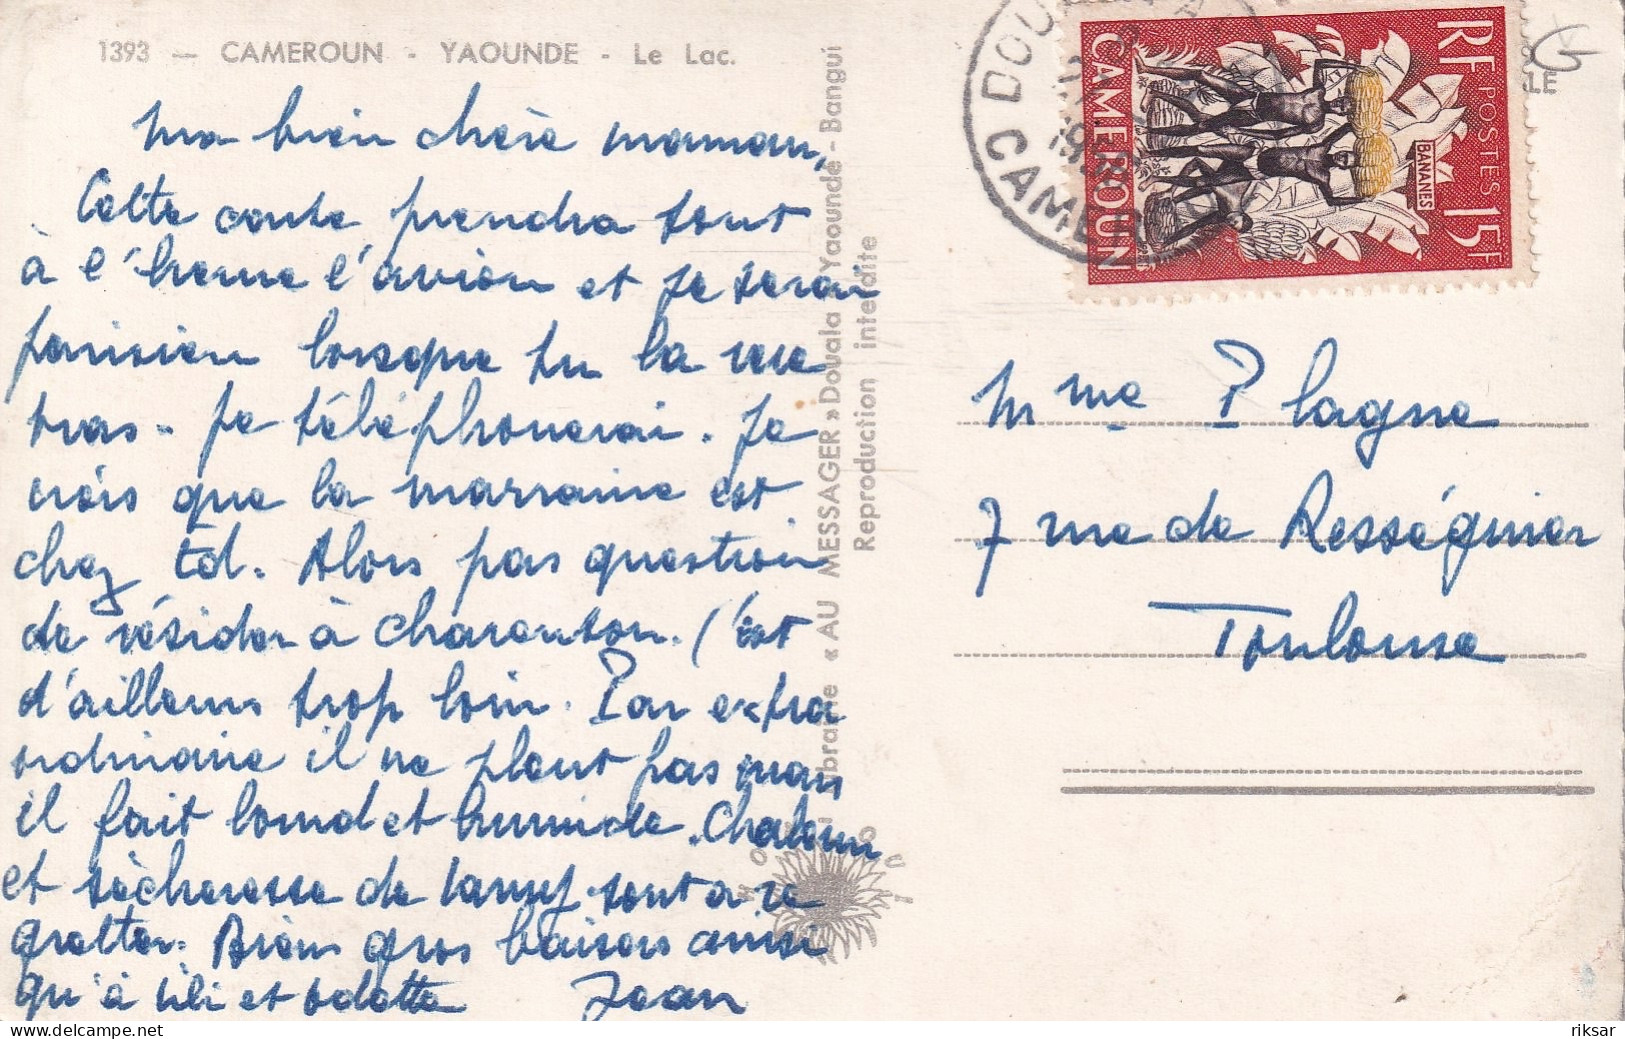 1393 — CAMEROUN - YAOUNDE - Le Lac.
Ma bien chère maman,
Cette carte prendra tout
à l'heure l'avion et je serai
parisien lorsque tu la rece
vras. Je téléphonerai. Je
crois que la marraine est
chez Ed. Alors pas question
de résider à Charenton. C'est
d'ailleurs trop loin. Par extra
ordinaire il ne pleut pas mais
il fait lourd et humide. Chaleur
et sècheresse de Lamy sont à re
gretter. Biens gros baisers ainsi
qu'à Lili et Odette Jean
Librairie « AU MESSAGER » Douala Yaoundé - Bangui
Reproduction interdite
DOUALA
CAMEROUN
RF POSTES 15F
BANANES
CAMEROUN
Mme Plagne
7 rue de Rességuier
Toulouse
riksar